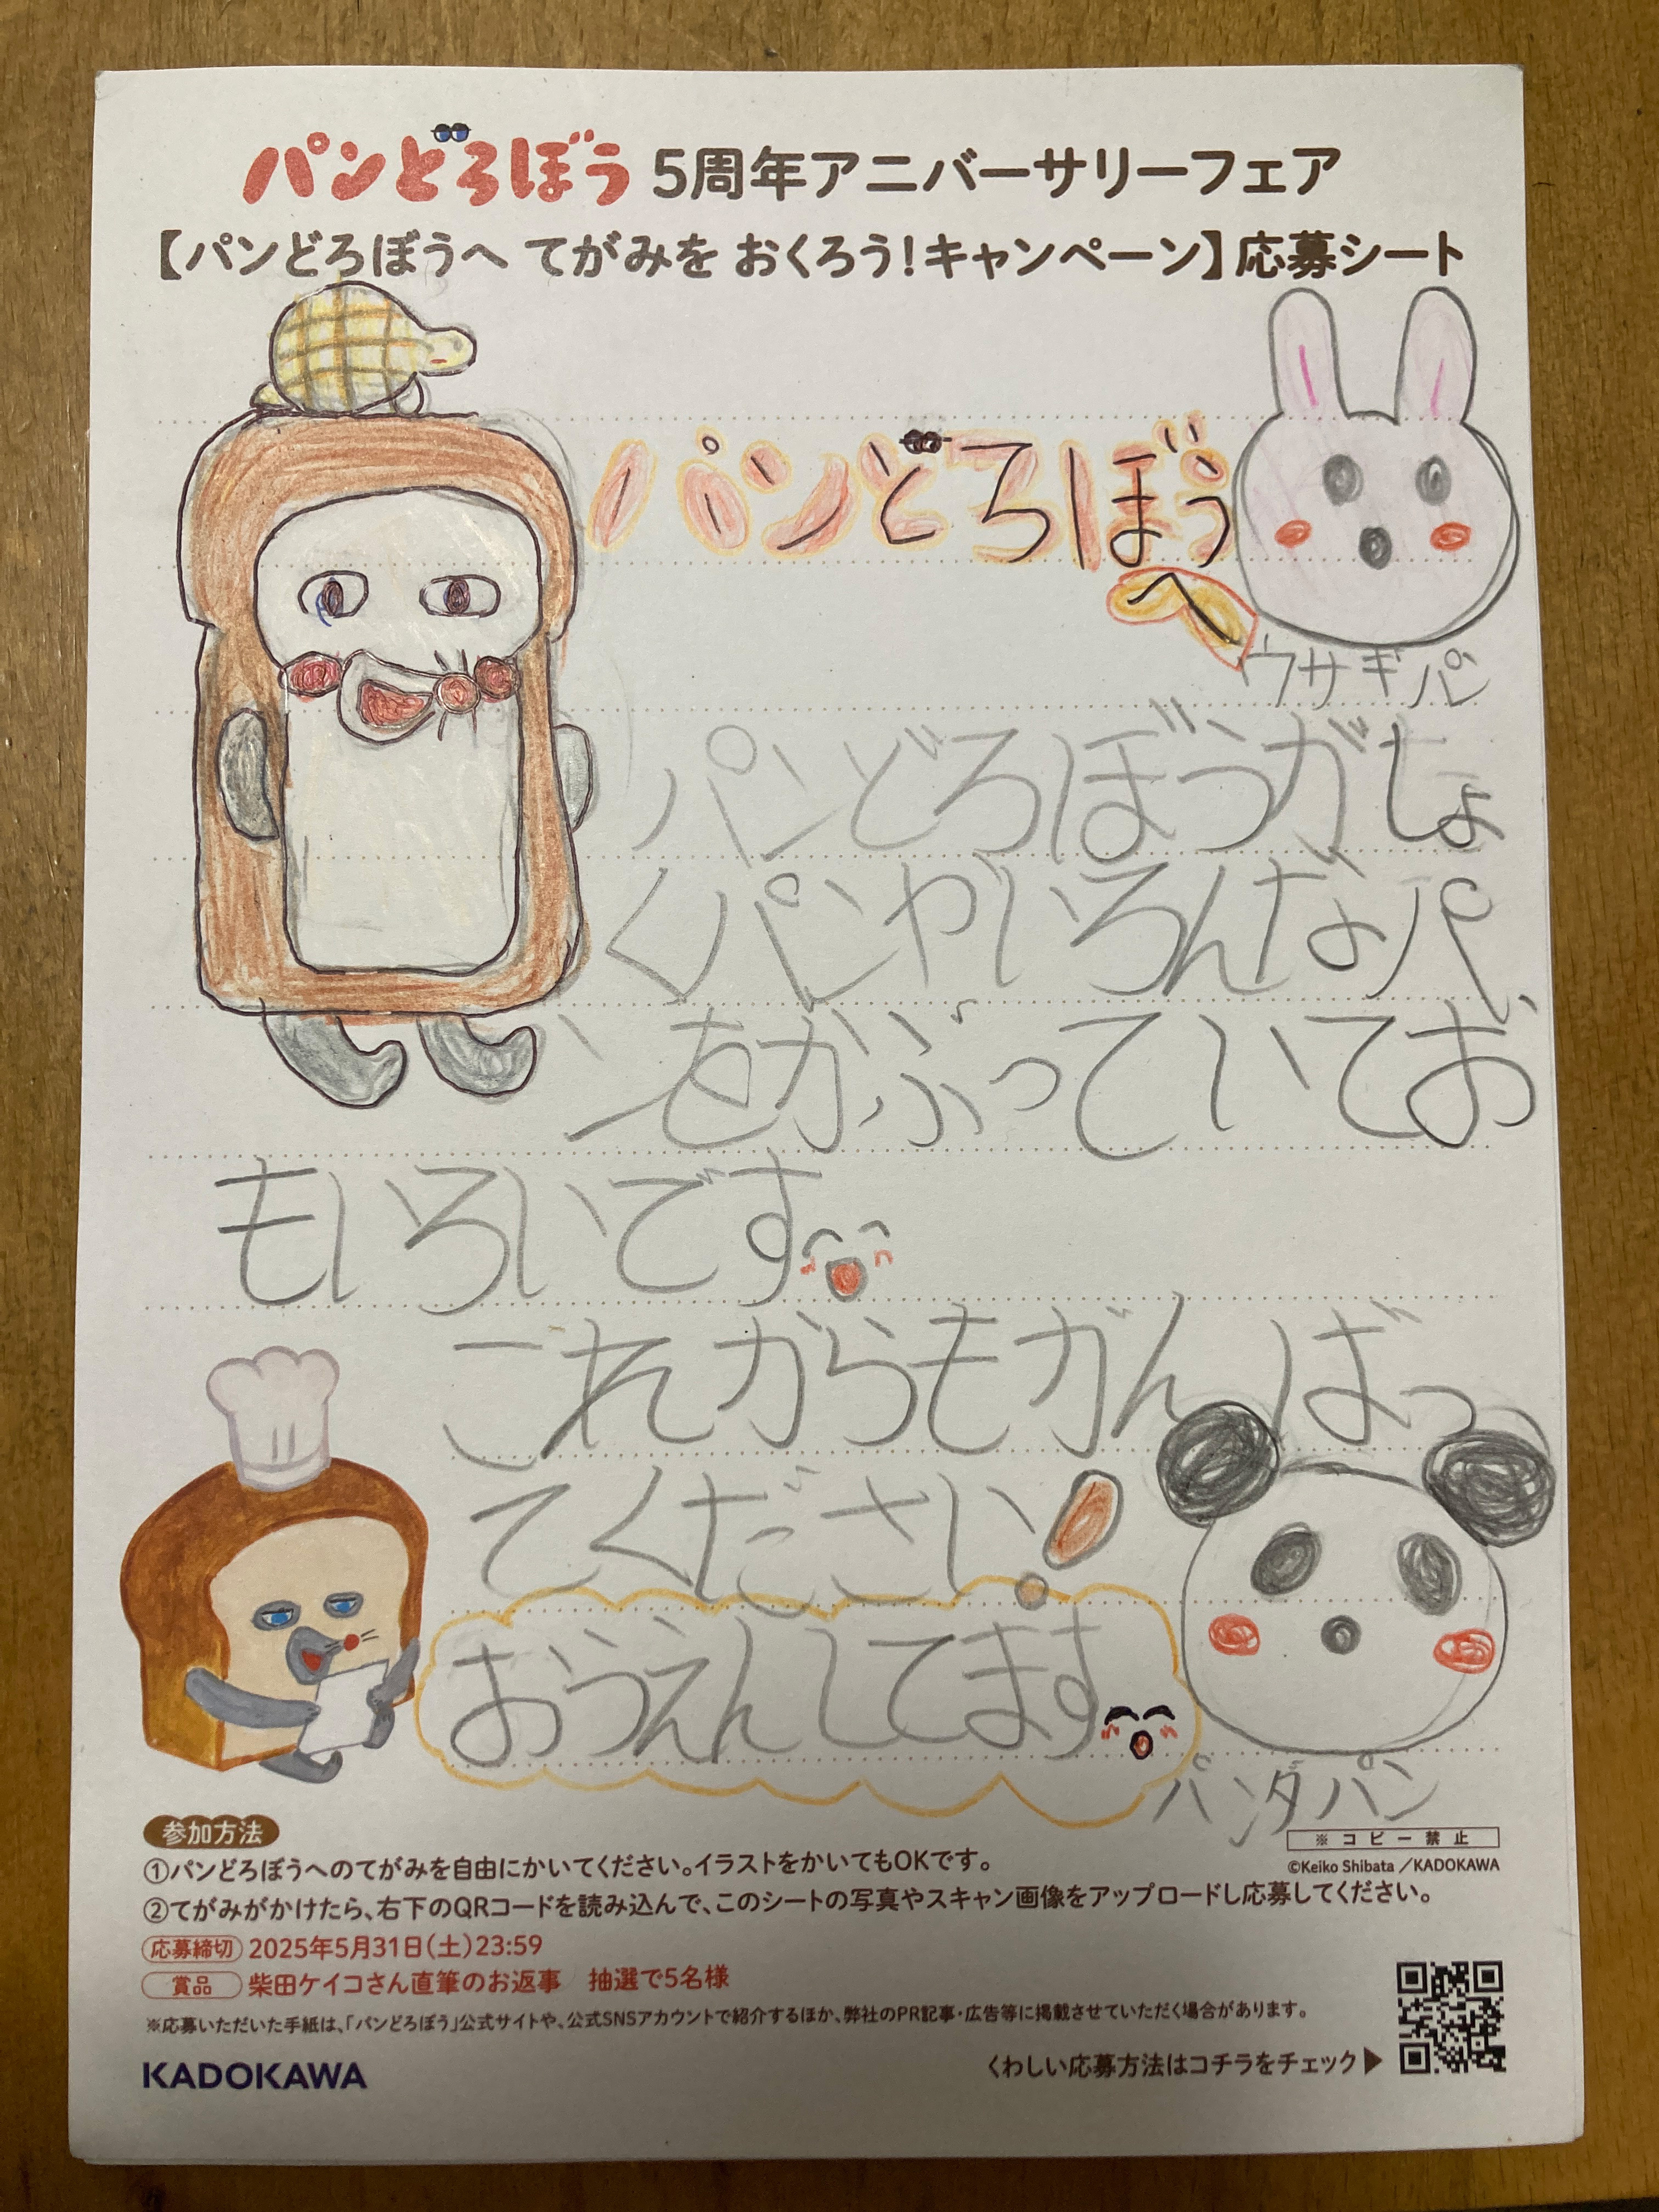 パンどろぼう 5周年アニバーサリーフェア
【パンどろぼうへ てがみを おくろう!キャンペーン】応募シート
パンどろぼう
へ
ウサギパン
パンどろぼうがしょ
くパンやいろんなパ
ンをかぶっていてお
もしろいです
これからもがんばっ
てください!
おうえんしてます
パンダパン
※コピー禁止
©Keiko Shibata/KADOKAWA
参加方法
①パンどろぼうへのてがみを自由にかいてください。イラストをかいてもOKです。
②てがみがかけたら、右下のQRコードを読み込んで、このシートの写真やスキャン画像をアップロードし応募してください。
応募締切 2025年5月31日(土)23:59
賞品 柴田ケイコさん直筆のお返事 抽選で5名様
※応募いただいた手紙は、「パンどろぼう」公式サイトや、公式SNSアカウントで紹介するほか、弊社のPR記事・広告等に掲載させていただく場合があります。
くわしい応募方法はコチラをチェック▶
KADOKAWA